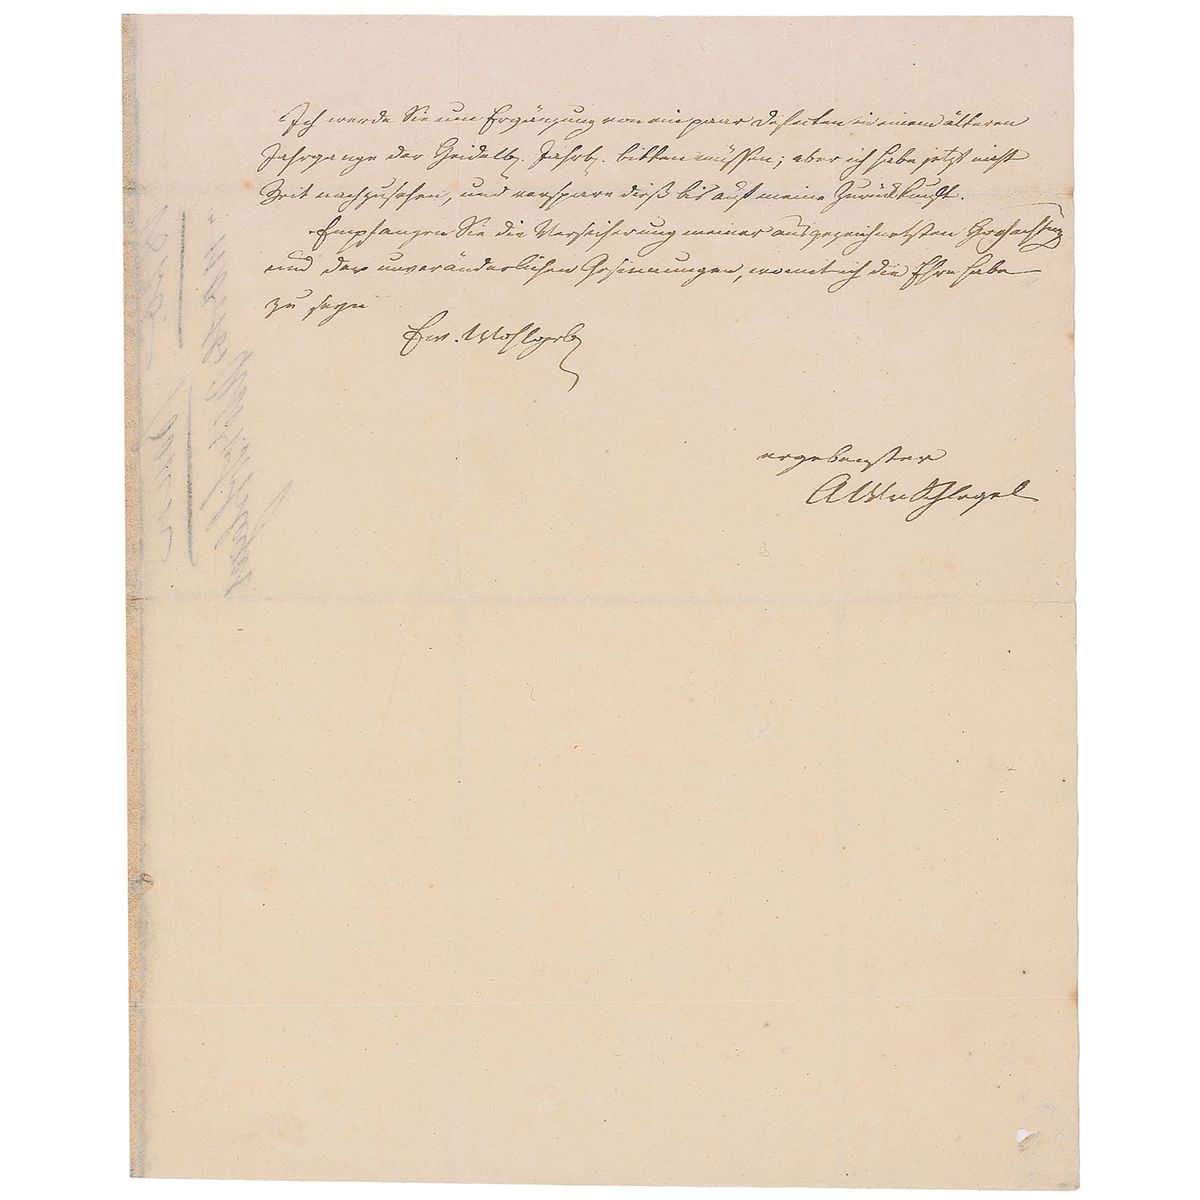 Ich werde Sie um Ergänzung von ein paar Defecten in einem älteren
Jahrgange der Heidelb. Jahrb. bitten müssen; aber ich habe jetzt nicht
Zeit nachzusehen, und verspare dieß bis auf meine Zurückkunft.
Empfangen Sie die Versicherung meiner ausgezeichnetsten Hochachtung
und der unveränderlichen Gesinnungen, womit ich die Ehre habe
zu seyn
Ew. Wohlgeb
ergebenster
AWvSchlegel